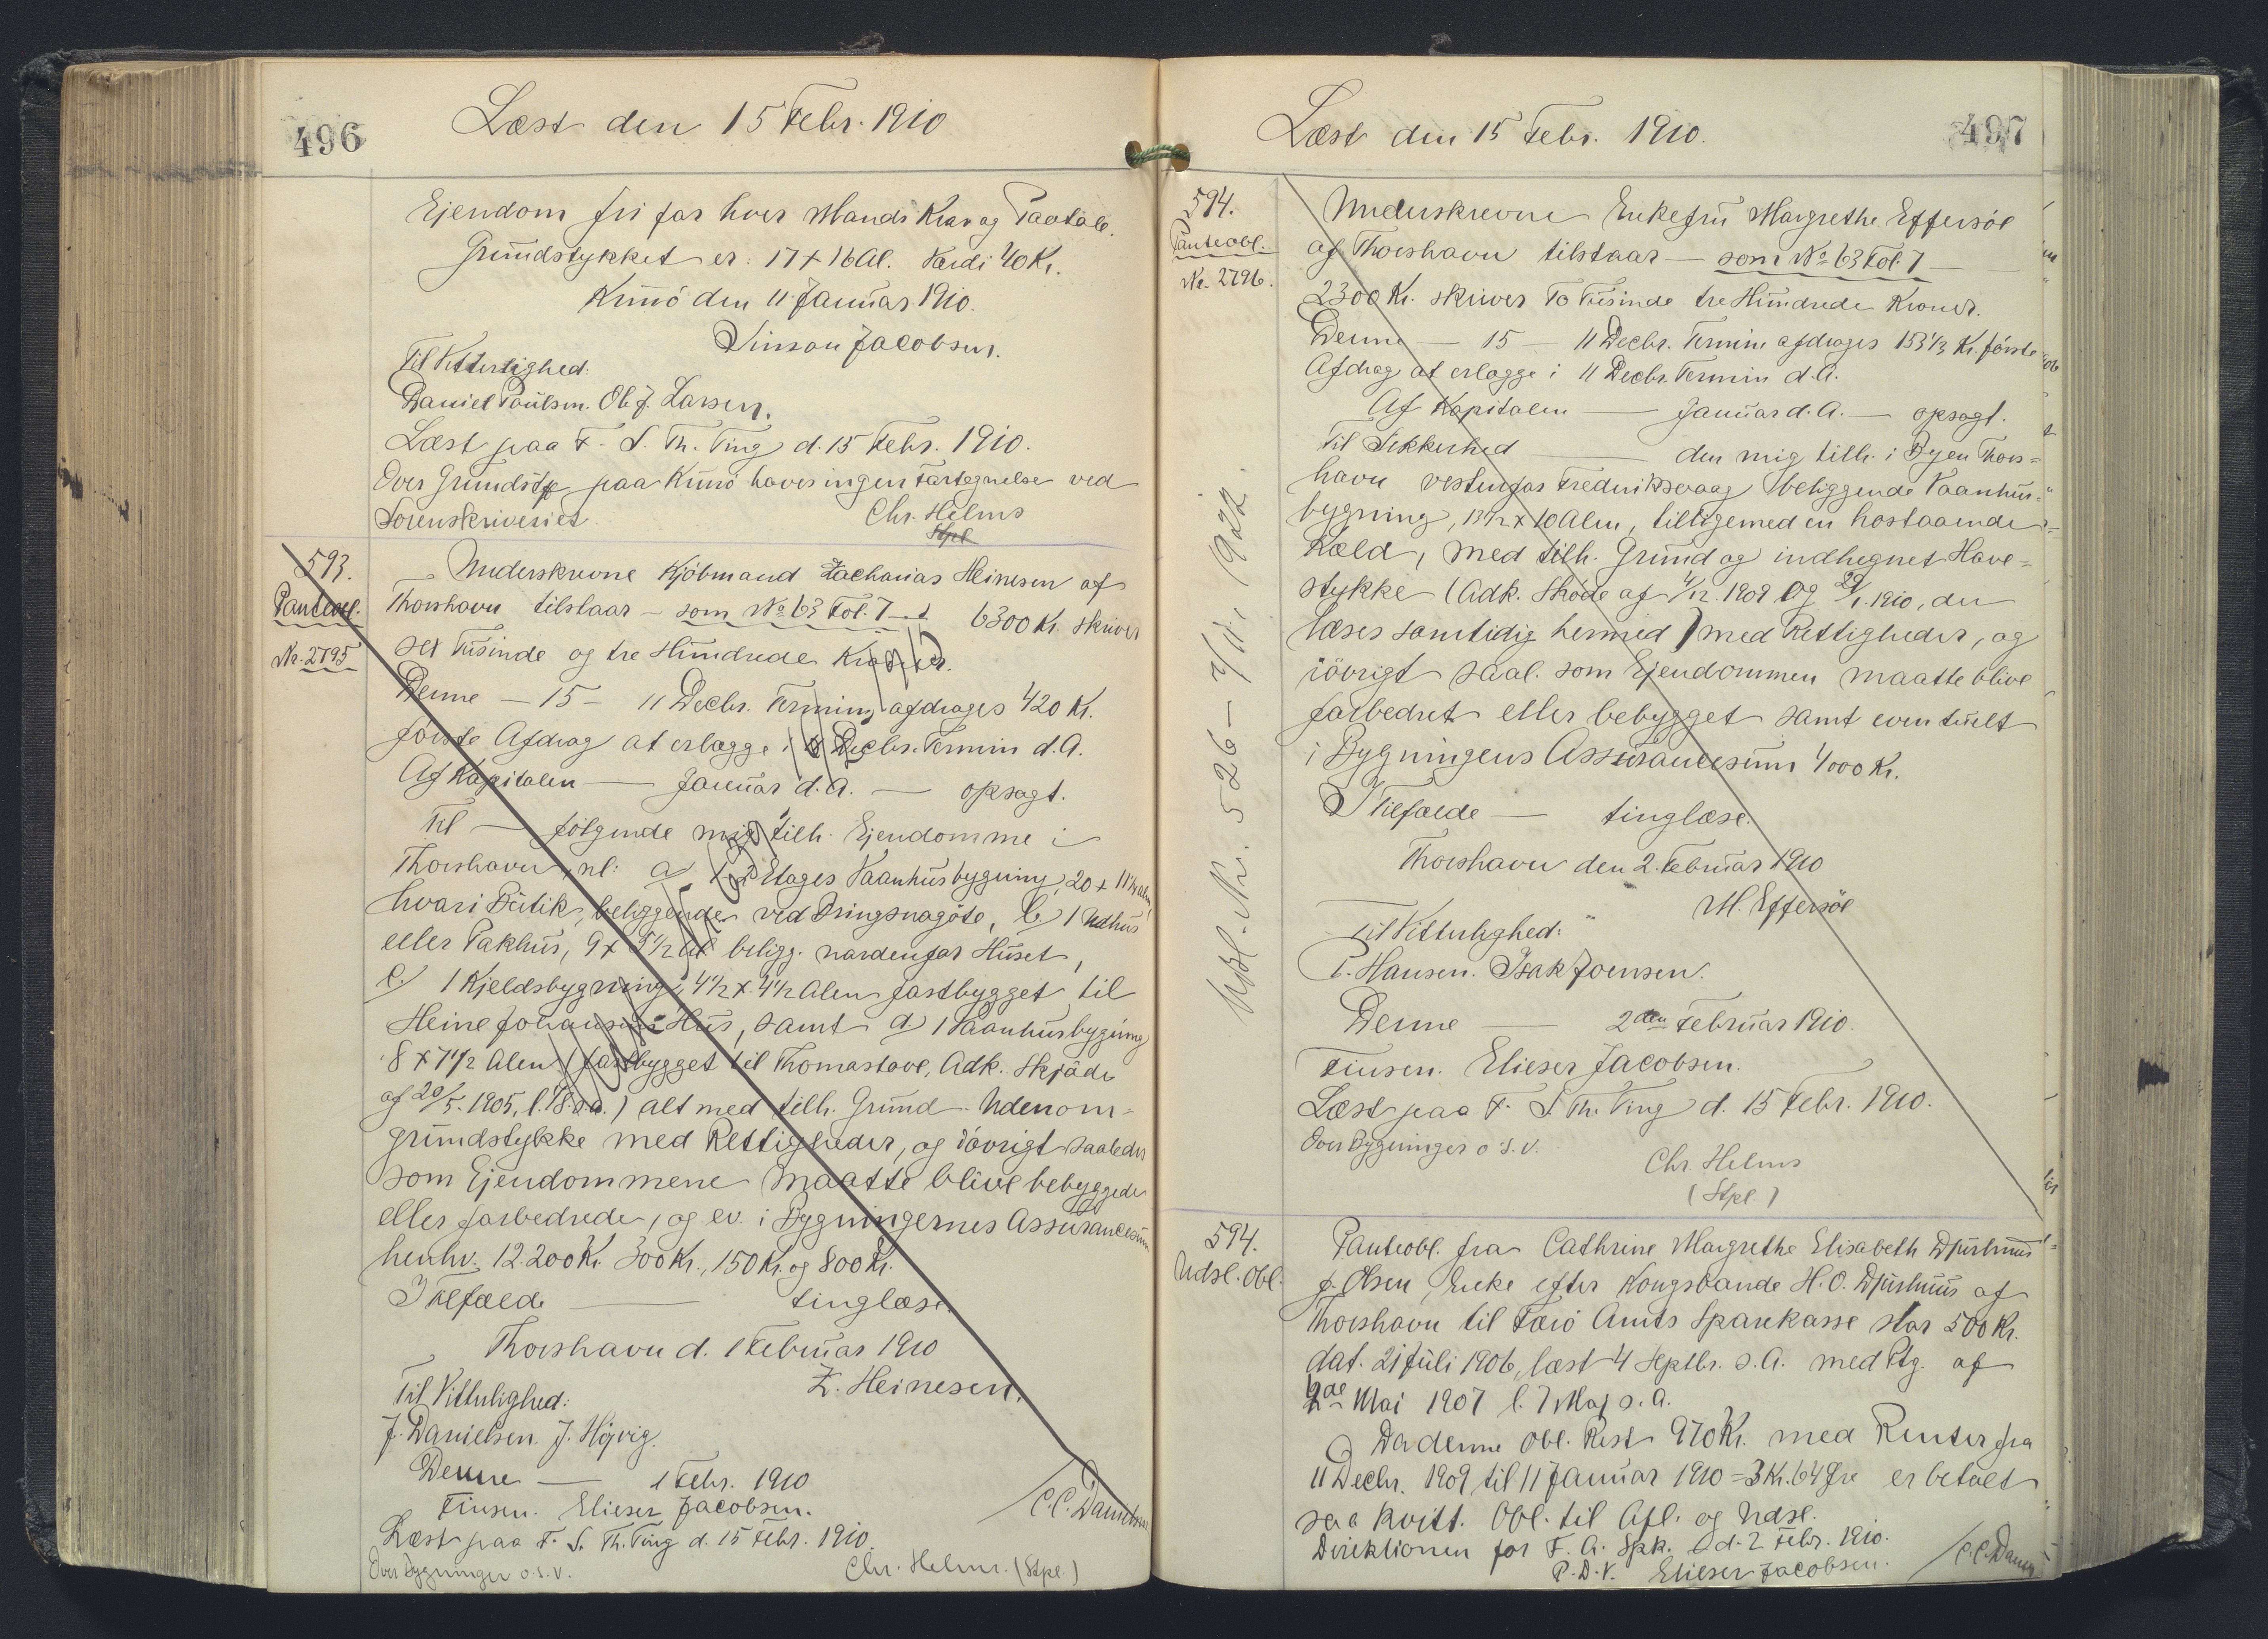 496
Læst den 15 Febr. 1910
Ejendom fri for hver Mands Krav og Paatale.
Grundstykket er: 17 x 16 Al. Værdi 40 Kr.
Kunö den 11 Januar 1910.
Simson Jacobsen.
Til Vitterlighed:
Daniel Poulsen. Ole J. Larsen.
Læst paa F. S. Th. Ting d. 15 Febr. 1910.
Over Grundst. paa Kunö haves ingen Fortegnelse ved
Sorenskriveriet.
Chr. Helms
Stpl
593.
Panteobl.
Nr. 2795
Underskrevne Kjöbmand Zacharias Heinesen af
Thorshavn tilstaar – som No 63 Fol. 7 – 6300 Kr. skriver
sex Tusinde og tre Hundrede Kroner.
Denne – 15 – 11 Decbr. Termin afdrages 420 Kr.
første Afdrag at erlægge i 11 Decbr. Termin d.A.
Af Kapitalen — Januar d.A. — opsagt.
Til — følgende mig tilh. Ejendomme i
Thorshavn, nl: a) 1 2 Etages Vaanhusbygning, 20 x 11½ alen,
hvori Butik, beliggende ved Bringsnagöte, b) 1 Udhus
eller Pakhus, 9 x 5½ al beligg. nordenfor Huset,
c) 1 Kjeldsbygning, 4½ x 4½ Alen fastbygget til
Heine Johansens Hus, samt d) 1 Vaanhusbygning
8 x 7½ Alen (fastbygget til Thomastove, Adk. Skjøde
af 20/5. 1905, l. 18. s.A.) alt med tilh. Grund. Udenom-
grundstykke med Rettigheder, og iövrigt saaledes
som Ejendommene maatte blive bebyggede
eller forbedrede, og ev. i Bygningernes Assurancesum
henhv. 12.200 Kr. 300 Kr., 150 Kr. og 800 Kr.
I Tilfælde — tinglæse.
Thorshavn d. 1 Februar 1910
Z. Heinesen.
Til Vitterlighed:
J. Danielsen. J. Höjvig.
Denne — 1 Febr. 1910
Finsen. Elieser Jacobsen.
C.C. Danielsen
Læst paa F. S. Th. Ting d. 15 Febr. 1910.
Over Bygninger o.s.v.
Chr. Helms. (Stpl.)
497
Læst den 15 Febr. 1910.
594.
Panteobl.
Nr. 2796.
Underskrevne Enkefru Margrethe Effersöe
af Thorshavn tilstaar — som No 63 Fol. 7 —
2300 Kr. skriver To Tusinde tre Hundrede Kroner.
Denne — 15 — 11 Decbr. Termin afdrages 153⅓ Kr. første
Afdrag at erlægge i 11 Decbr. Termin d.A.
Af Kapitalen — Januar d.A. — opsagt.
Til Sikkerhed — den mig tilh. i Byen Thors-
havn vestenfor Frederiksvaag beliggende Vaanhus-
bygning, 13½ x 10 Alen, tilligemed en hostaaende
Kæld, med tilh. Grund og indhegnet Have-
stykke (Adk. Skøde af 4/12. 1909 og 29/1. 1910, der
læses samtidig hermed) med Rettigheder, og
iövrigt saal. som Ejendommen maatte blive
forbedret eller bebygget samt eventuelt
i Bygningens Assurancesum 4000 Kr.
I Tilfælde — tinglæse.
Thorshavn den 2. Februar 1910
M. Effersöe
Til Vitterlighed:
P. Hansen. Isak Joensen.
Denne — 2den Februar 1910.
Finsen. Elieser Jacobsen.
Læst paa F. S. Th. Ting d. 15 Febr. 1910.
Over Bygninger o.s.v.
Chr Helms
(Stpl.)
Udsl. Nr. 526 – 7/11, 1922.
594.
Udsl. Obl.
Panteobl. fra Cathrine Margrethe Elisabeth Djurhuus
f. Olsen, Enke efter Kongsbonde H.O. Djurhuus af
Thorshavn til Færö Amts Sparekasse stor 500 Kr.
dat. 21 Juli 1906, læst 4 Septbr. s.A. med Ptg. af
2de Mai 1907 l. 7 Maj s.A.
Da denne Obl. Rest 970 Kr. med Renter fra
11 Decbr. 1909 til 11 Januar 1910 = 3 Kr. 64 Øre er betalt
saa kvitt. Obl. til Afl. og Udsl.
Direktionen for F. A. Spk. d. 2 Febr. 1910.
P.D.V. Elieser Jacobsen.